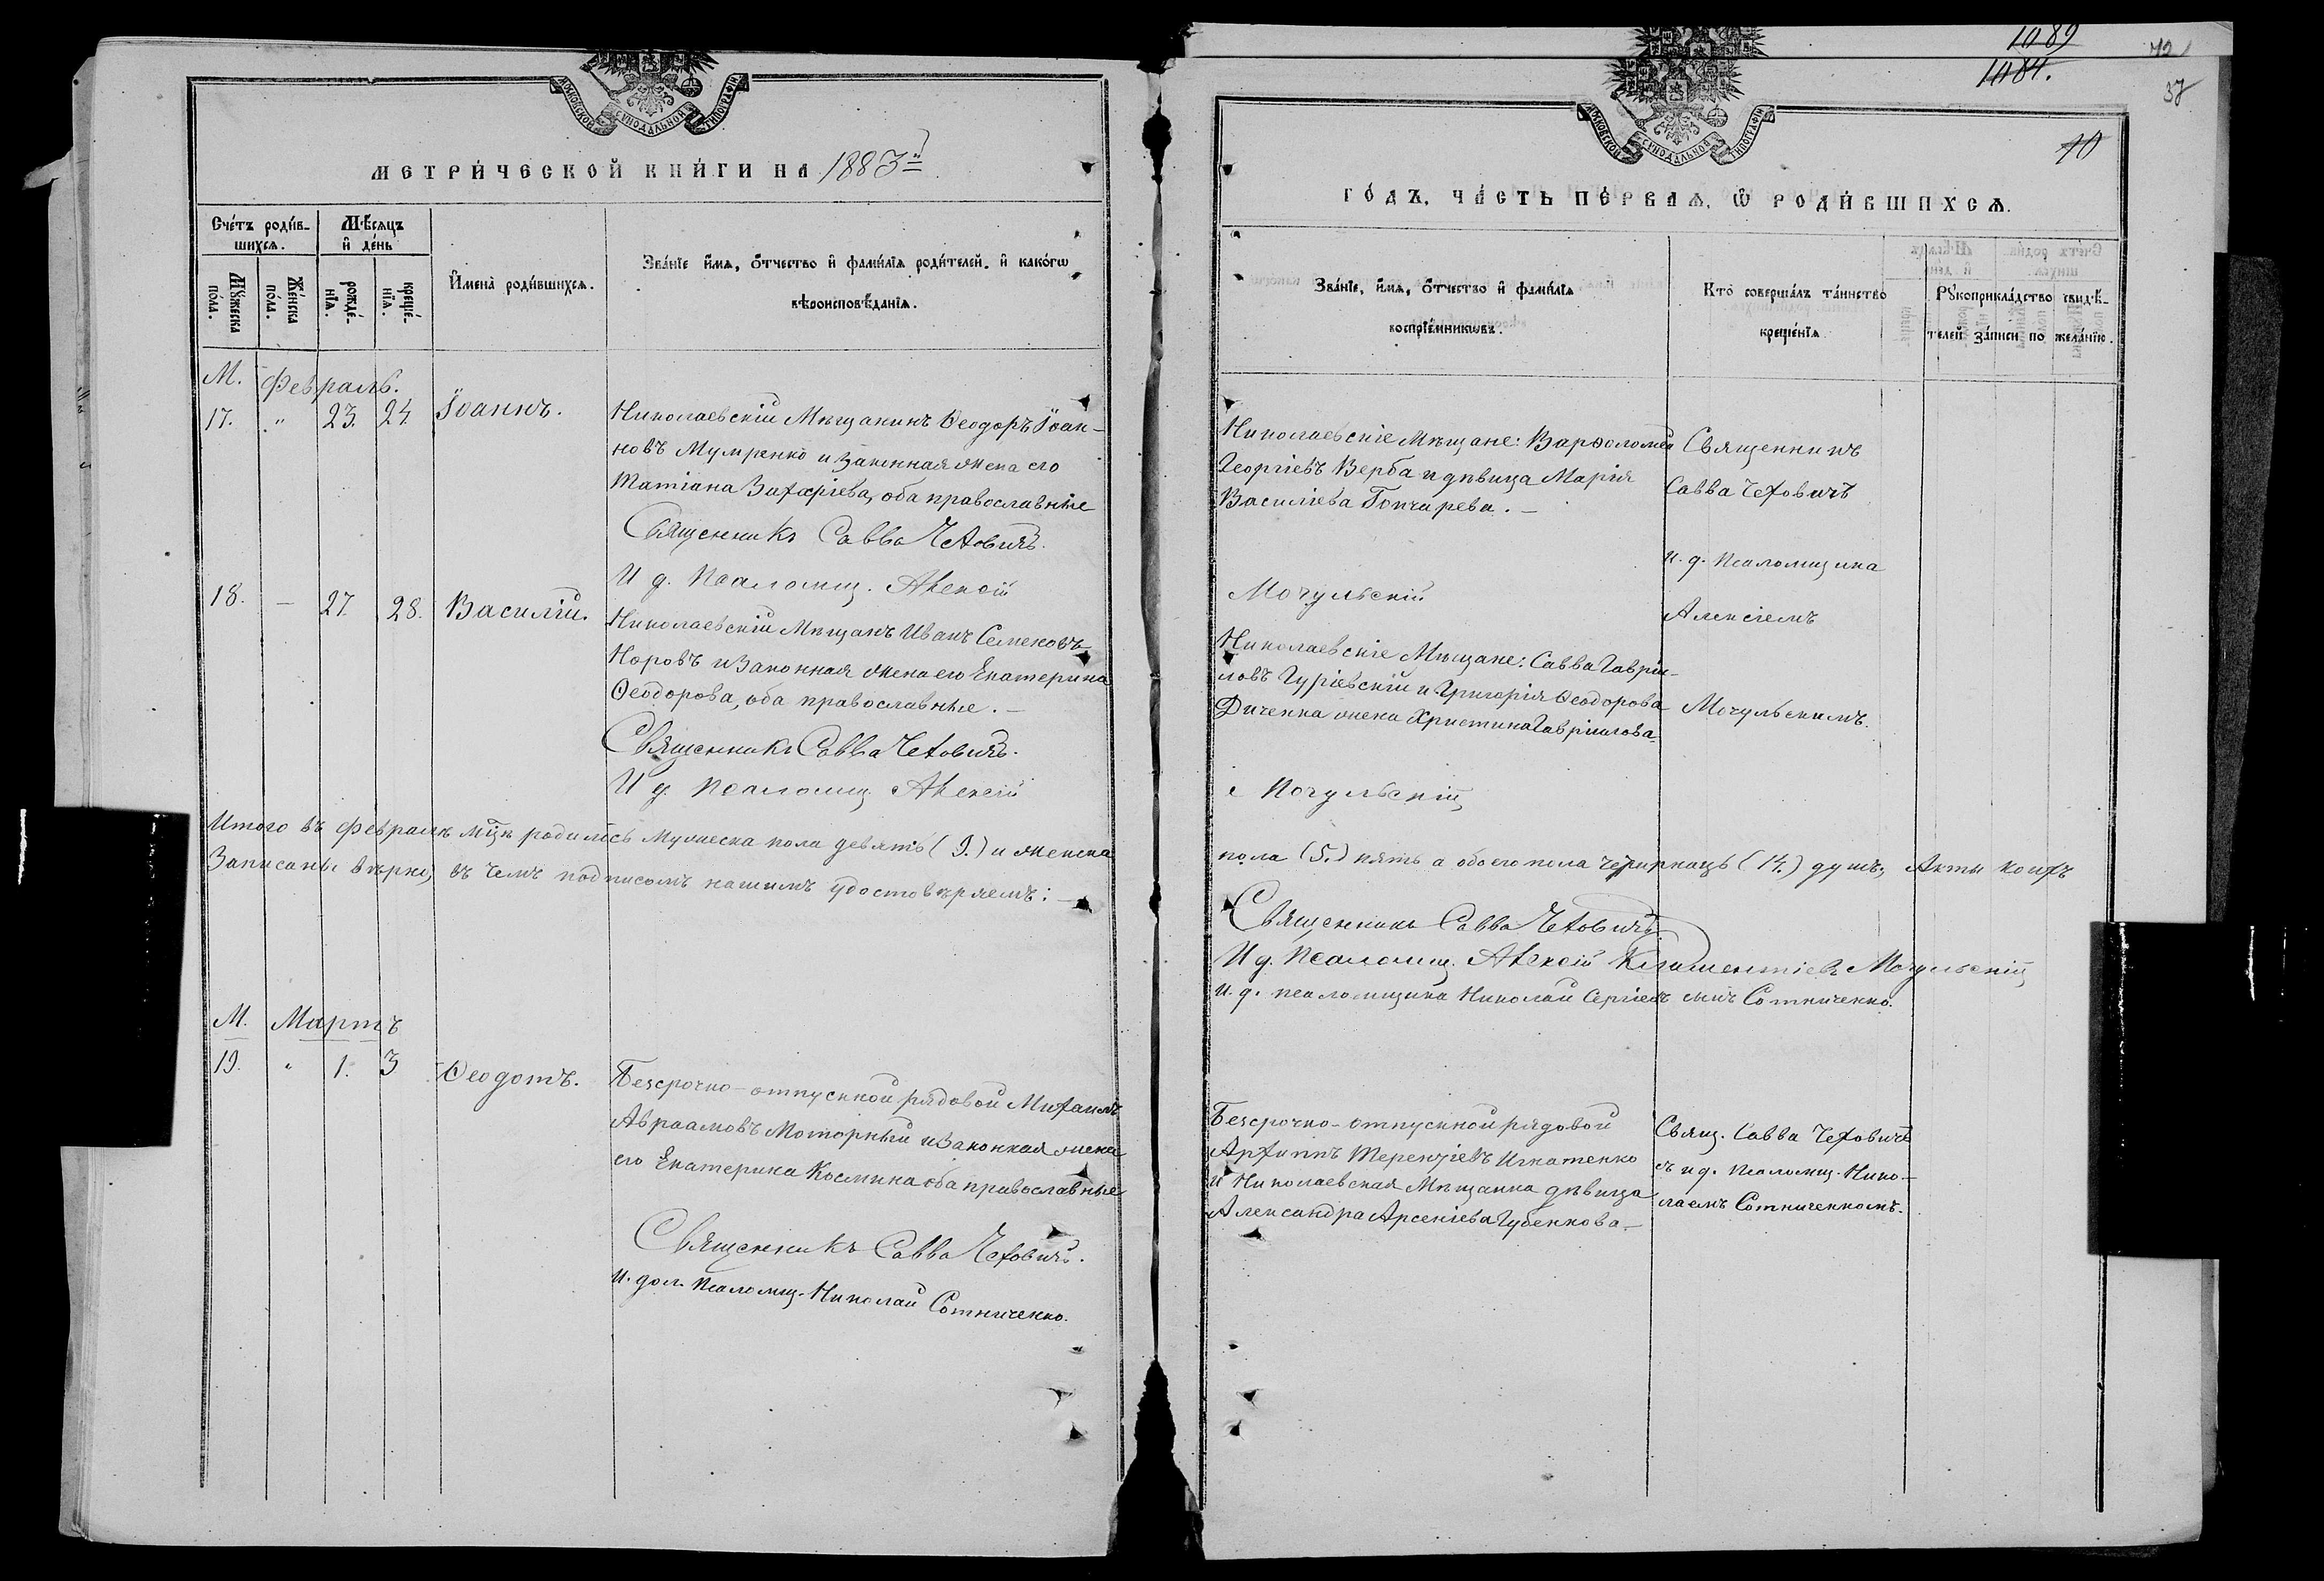 МОСКОВСКОЙ СѴНОДАЛЬНОЙ ТИПОГРАФІИ
МЕТРИ́ЧЕСКОЙ КНИ́ГИ НА 1883й
Сче́тъ роди́в-
шихся.
Мѣ́сяцъ
и҆ де́нь
Мꙋ́жеска
по́ла.
Же́нска
по́ла.
рожде́-
нїѧ.
креще́-
нїѧ.
И҆мена̀ роди́вшихсѧ.
Зва́нїе и҆́мѧ, ѻ҆́тчество и҆ фами́лїѧ роди́телей, и҆ како́гѡ
вѣроисповѣ́данїѧ.
М. Февраль.
17. " 23. 24. Іоаннъ.
Николаевскій Мѣщанинъ Ѳеодоръ Іоан-
новъ Мумренко и законная жена его
Татіана Захаріева, оба православніе
Священникъ Савва Чеховичъ.
И д. Псаломщ. Алексій
18. — 27. 28. Василій.
Николаевскій Мѣщанъ Иванъ Семеновъ
Норовъ и законная жена его Екатерина
Ѳеодорова, оба православные. —
Священникъ Савва Чеховичъ.
И д. Псаломщ. Алексій
Итого въ Февралѣ мцѣ родилось мужеска пола девять (9.) и женска
Записаны вѣрно, въ чемъ подписомъ нашимъ удостовѣряемъ: —
М. Мартъ
19. " 1. 3 Ѳеодотъ.
Безсрочно-отпускной рядовой Михаилъ
Авраамовъ Моторный и законная жена
его Екатерина Космина оба православные
Священникъ Савва Чеховичъ.
И. дол. Псаломщ. Николай Сотниченко.
1089
1084.
72
37
10
МОСКОВСКОЙ СѴНОДАЛЬНОЙ ТИПОГРАФІИ
ГО́ДЪ, ЧА́СТЬ ПЕ́РВАѦ, Ѡ҆ РОДИ́ВШИХСѦ.
Зва́нїе, и҆́мѧ, ѻ҆́тчество и҆ фами́лїѧ
воспрїе́мникѡвъ.
Кто̀ соверша́лъ та́инство
креще́нїѧ
Рꙋкоприкла́дство свидѣ́-
телей за́писи по жела́нїю.
Николаевскіе Мѣщане: Варѳоломей
Георгіевъ Верба и дѣвица Марія
Василіева Гончарева. —
Священникъ
Савва Чеховичъ
и. д. Псаломщика
Мочульскій
Алексіемъ
Николаевскіе Мѣщане: Савва Гаврі-
ловъ Гуріевскій и Григорія Ѳеодорова
Диченка жена Христина Гавріилова.
Мочульскимъ.
Мочульскій
пола (5.) пять а обоего пола четырнацъ (14.) душъ, Акты коихъ
Священникъ Савва Чеховичъ.
И д. Псаломщ. Алексій Климентіевъ Мочульскій
и. д. псаломщика Николай Сергіевъ сынъ Сотниченко.
Безсрочно-отпускной рядовой
Архиппъ Терентіевъ Игнатенко
и Николаевская Мѣщанка дѣвица
Александра Арсеніева Губенкова. —
Свящ. Савва Чеховичъ
съ и д. Псаломщ. Нико-
лаемъ Сотниченкомъ.